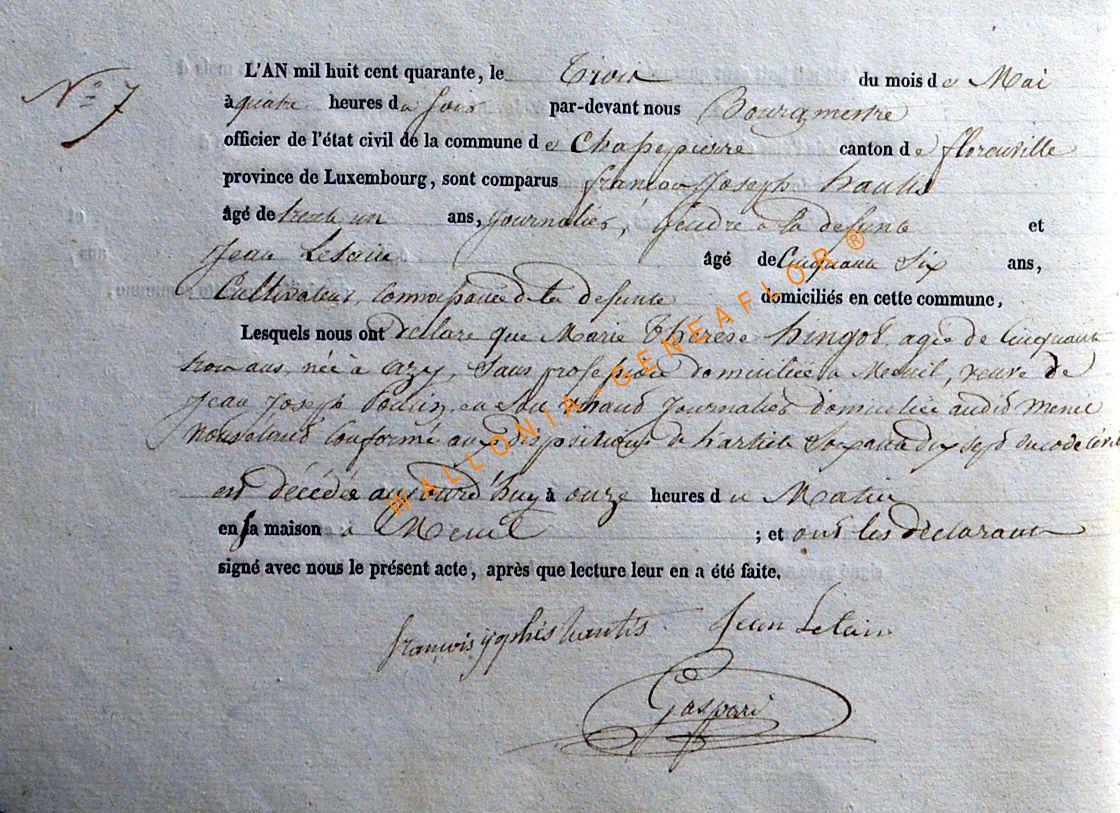 N° 7
L'AN mil huit cent quarante, le trois du mois de Mai
à quatre heures du soir par-devant nous Bourgmestre
officier de l'état civil de la commune de Chapepierre canton de florenville
province de Luxembourg, sont comparus françois Joseph hautis
âgé de trente un ans, journalier, gendre à la defunte et
Jean Letain âgé de Cinquante Six ans,
Cultivateur, de la defunte domiciliés en cette commune,
Lesquels nous ont déclaré que Marie thérèse hingot, agée de Cinquante
trois ans, née à izy, Sans profession domiciliée à Menil, veuve de
Jean Joseph en Son vivant Journalier domicilié audit Menil
conformé aux dispositions de Soixante dix sept du code Civil
est décédée aujourd'huy à onze heures du Matin
en sa maison à Menil ; et ont les déclarants
signé avec nous le présent acte, après que lecture leur en a été faite.
françois hautis Jean Letain
Gaspari
WALLONIA-GENEAFLOR ®